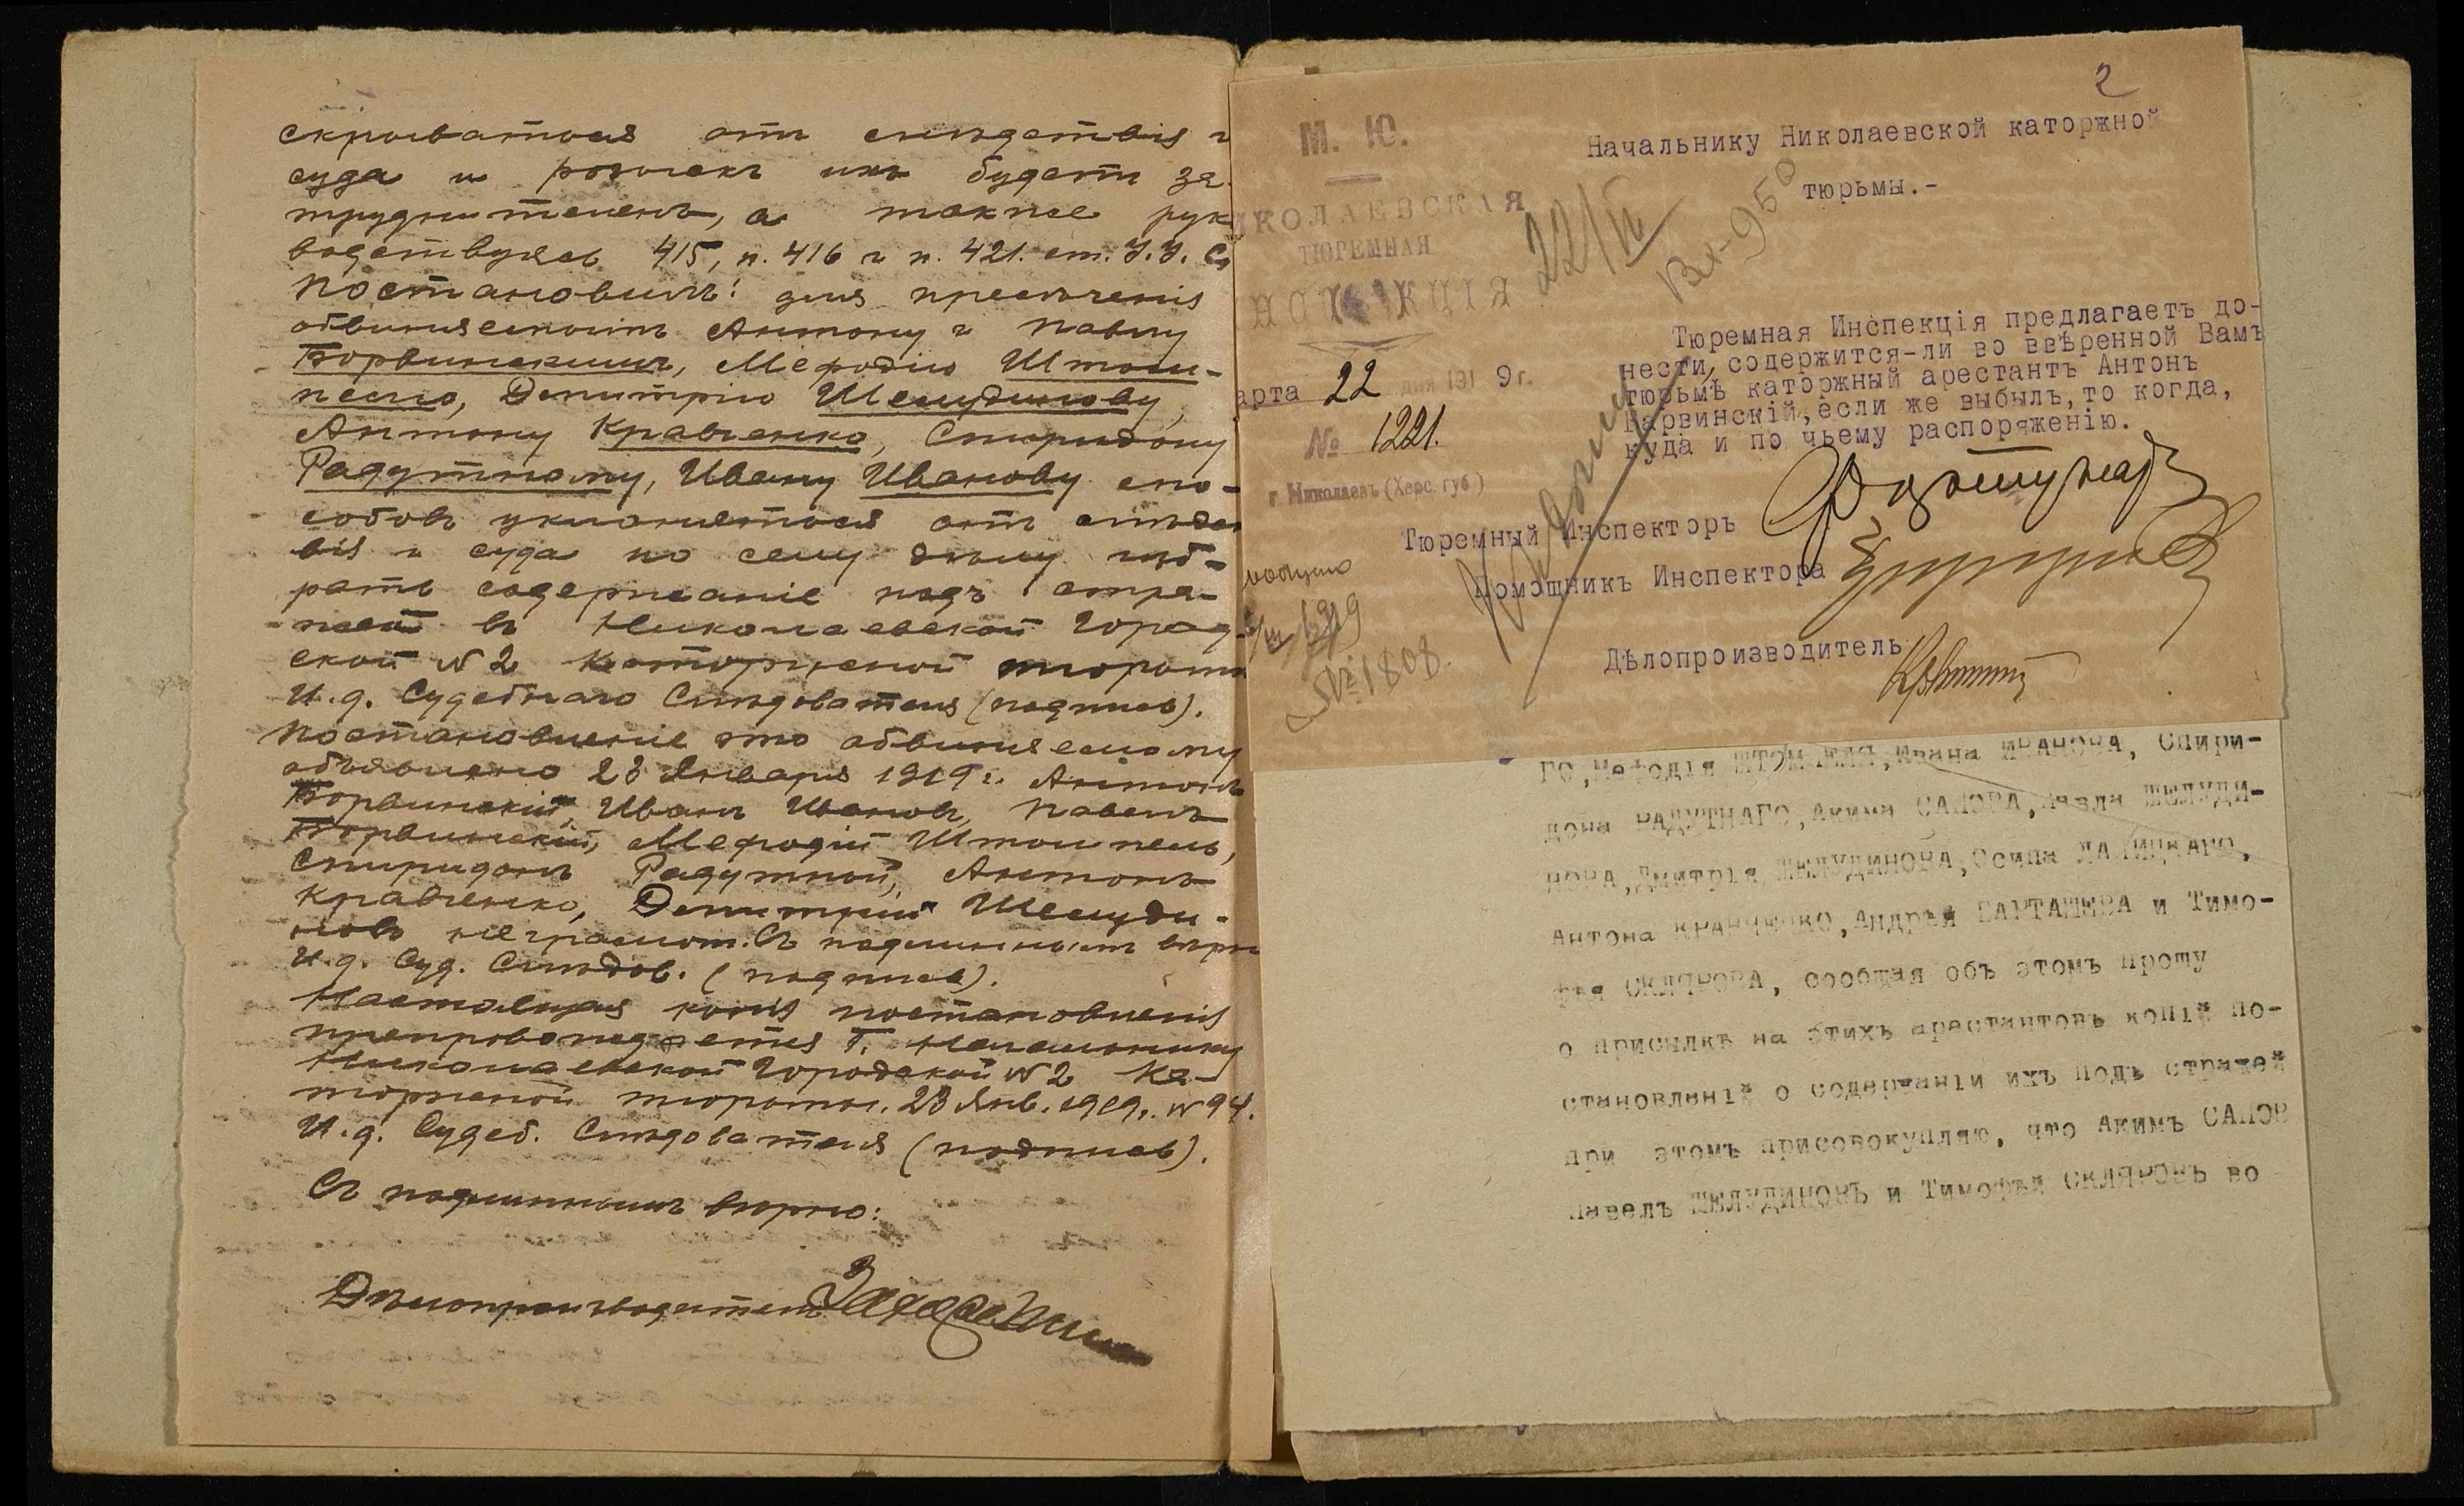 скрываться отъ слѣдствія и
суда и розыскъ ихъ будетъ за-
труднителенъ, а также рук
водствуясь 415, п. 416 и п. 421 ст. У.У.С.
постановилъ: для пресѣченія
обвиняемымъ Антону и Павлу
Борвинскимъ, Мефодію Штом-
пелю, Дмитрію Шелудинову,
Антону Кравченко, Спиридону
Радутному, Ивану Иванову спо-
собовъ уклоняться отъ слѣдст
вія и суда по сему дѣлу изб-
рать содержаніе подъ стра-
жей въ Николаевской Город-
ской №2 Каторжной тюрьмѣ
И.д. Судебнаго Слѣдователя (подпись).
Постановленіе это обвиняемому
объявлено 23 Января 1919 г. Антонъ
Борвинскій, Иванъ Ивановъ, Павелъ
Борвинскій, Мефодій Штомпель,
Спиридонъ Радутный, Антонъ
Кравченко, Дмитрій Шелуди-
новъ неграмот. Съ подлиннымъ вѣрно
И.д. Суд. Слѣдов. (подпись).
Настоящая копія постановленія
препровождается Г. Начальнику
Николаевской Городской №2 Ка-
торжной тюрьмы. 23 Янв. 1919 г. №94.
И.д. Судеб. Слѣдователя (подпись).
Съ подлиннымъ вѣрно:
Дѣлопроизводитель
2
М. Ю.
ИКОЛАЕВСКАЯ
ТЮРЕМНАЯ
НСПЕКЦІЯ
арта 22 дня 1919 г.
№ 1221.
г. Николаевъ (Херс. губ)
22/III
Вх-950
Начальнику Николаевской каторжной
тюрьмы.-
Тюремная Инспекція предлагаетъ до-
нести, содержится-ли во ввѣренной Вамъ
тюрьмѣ каторжный арестантъ Антонъ
Барвинскій, если же выбылъ, то когда,
куда и по чьему распоряженію.
Тюремный Инспекторъ
Помощникъ Инспектора
Дѣлопроизводитель
/III 1919
№1808.
ГО, Мефодія ШТОМПЕЛЯ, Ивана ИВАНОВА, Спири-
дона РАДУТНАГО, Акима САПОВА, Павла ШЕЛУДИ-
НОВА, Дмитрія ШЕЛУДИНОВА, Осипа
Антона КРАВЧЕНКО, Андрѣя БАРТАШЕВА и Тимо-
фѣя СКЛЯРОВА, сообщая объ этомъ прошу
о присылкѣ на этихъ арестантовъ копій по-
становленій о содержаніи ихъ подъ стражей
при этомъ присовокупляю, что Акимъ САПОВ
Павелъ ШЕЛУДИНОВЪ и Тимофѣй СКЛЯРОВЪ во